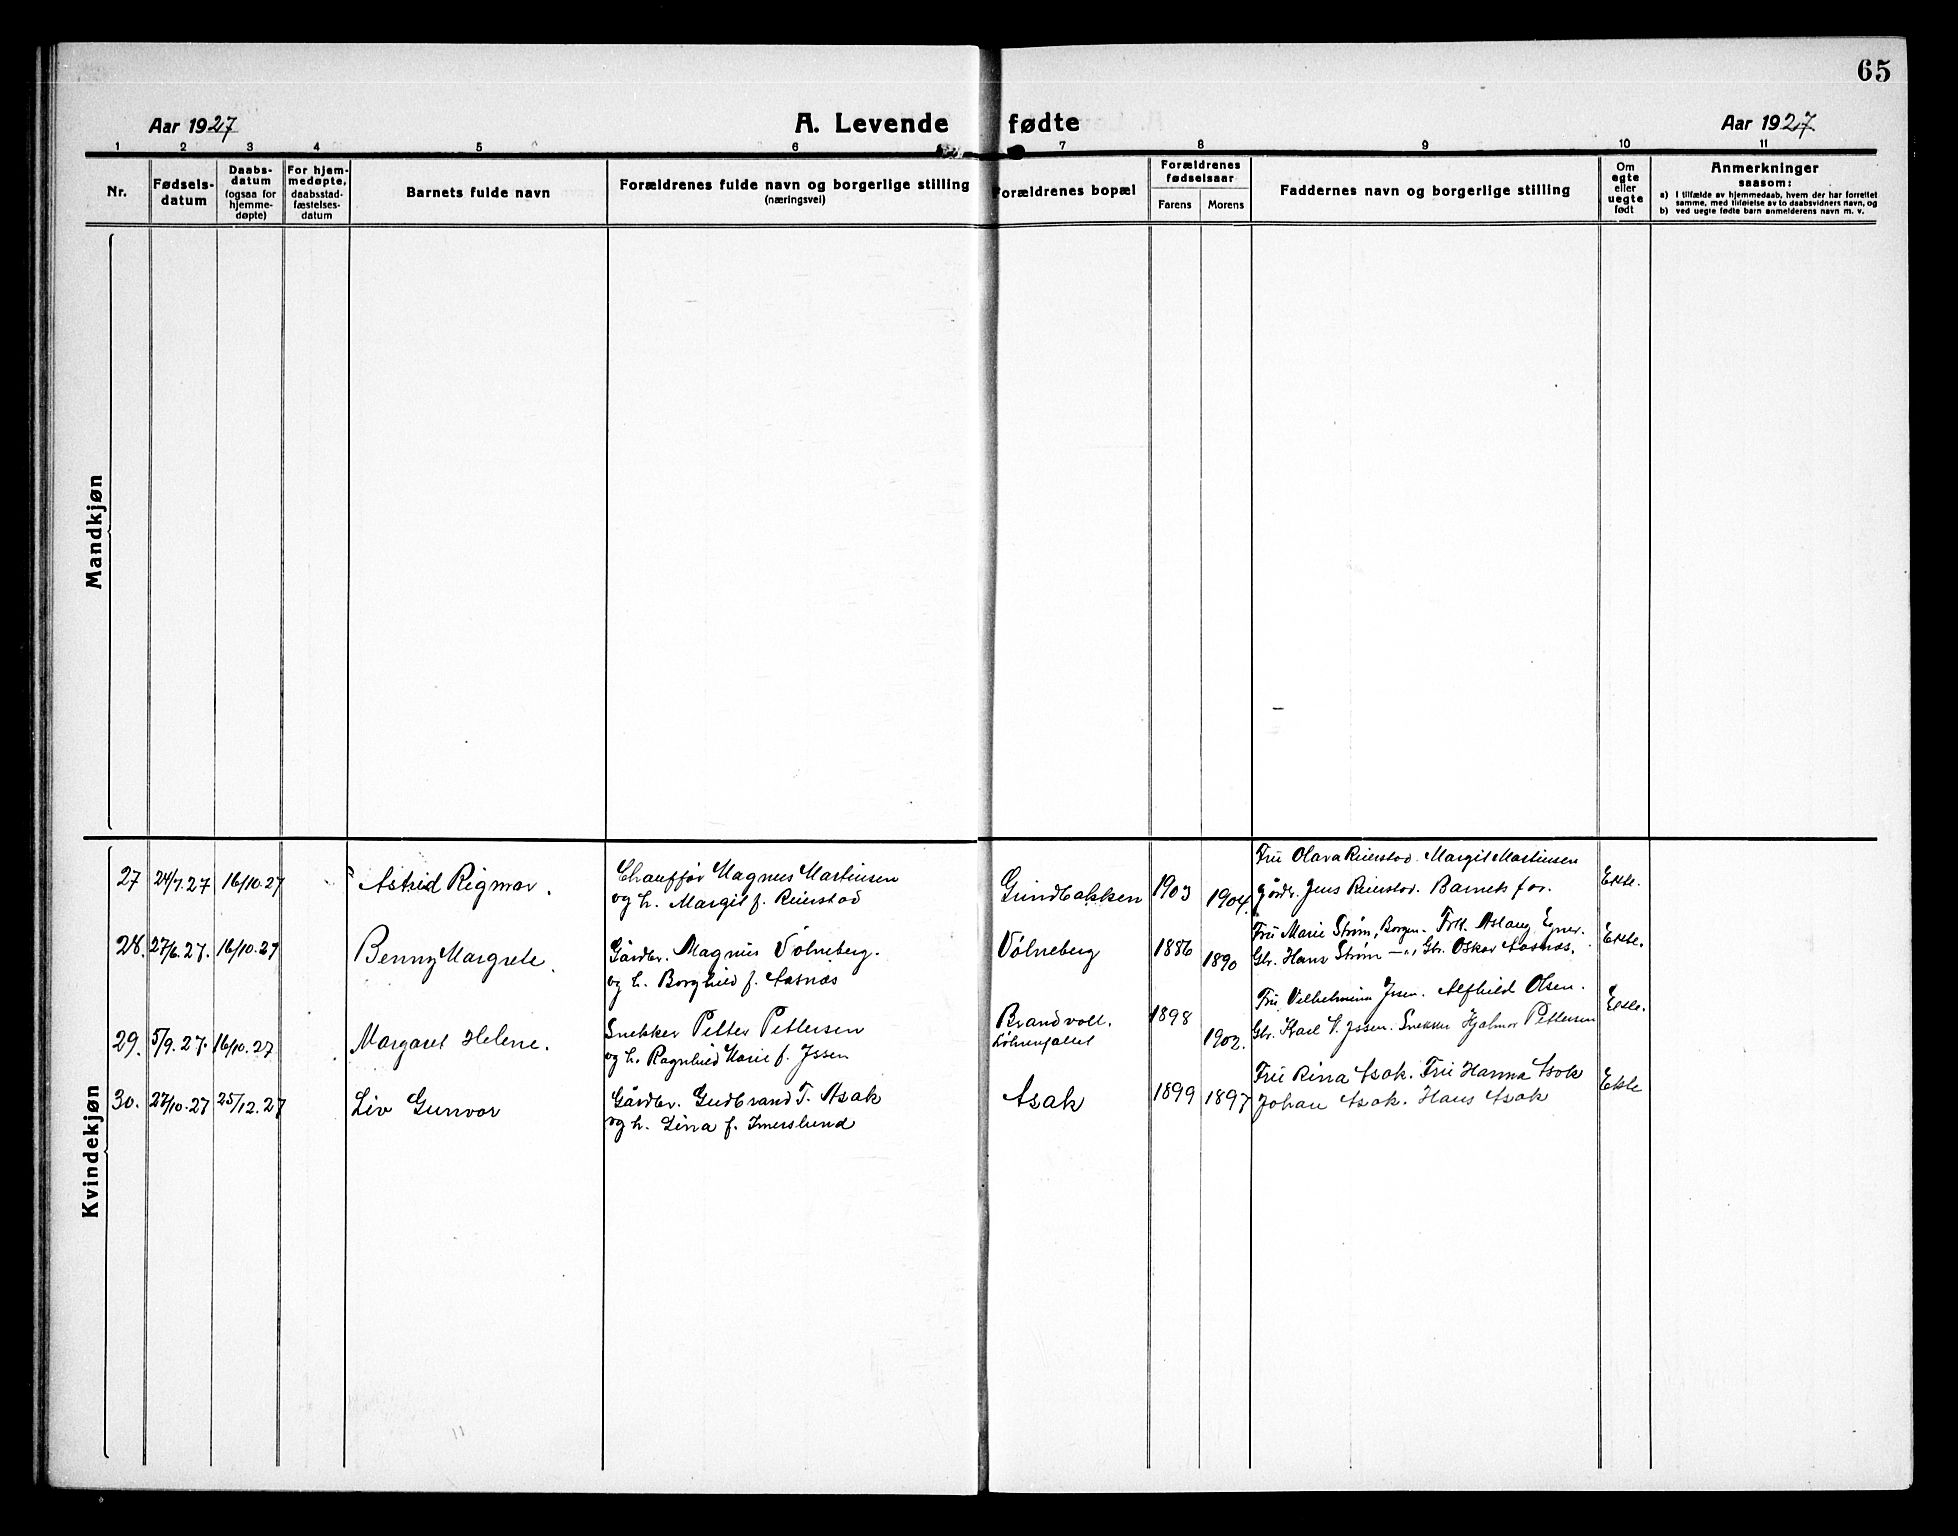 65
Aar 1927
A. Levende fødte
Aar 1927
1 2 3 4 5 6 7 8 9 10 11
Nr.
Fødsels-
datum
Daabs-
datum
(ogsaa for
hjemme-
døpte)
For hjem-
medøpte,
daabsstad-
fæstelses-
datum
Barnets fulde navn
Forældrenes fulde navn og borgerlige stilling
(næringsvei)
Forældrenes bopæl
Forældrenes
fødselsaar
Farens Morens
Faddernes navn og borgerlige stilling
Om
egte
eller
uegte
født
Anmerkninger
saasom:
a) I tilfælde av hjemmedaab, hvem der har forrettet
samme, med tilføielse av to daabsvidners navn, og
b) ved uegte fødte barn anmelderens navn m. v.
Mandkjøn
Kvindekjøn
27 24/7.27 16/10.27 Astrid Rigmor.
Chauffør Magnus Martinsen
og h. Margit f. Reierstad
Grindbakken 1903 1904.
Fru Olava Reierstad. Margit Martinsen
Gårdr. Jens Reierstad. Barnets far.
Ekte.
28. 27/6.27. 16/10.27 Benny Margrete.
Gårdbr. Magnus Vølneberg.
og h. Borghild f. Aasnæs
Vølneberg 1886 1890
Fru Marie Strøm, Borgen. Frk. Aslaug Egner.
Gbr. Hans Strøm —"— Gbr. Oskar Aasnæs.
Ekte.
29. 5/9.27. 16/10.27 Margaret Helene.
Snekker Petter Pettersen
og h. Ragnhild Marie f. Issen
Brandvoll.
1898 1902.
Fru Vilhelmine Issen. Alfhild Olsen.
Gbr. Karl V. Issen. Snekker Hjalmar Pettersen
Ekte.
30. 27/10.27 25/12.27 Liv Gunvor
Gårdbr. Gudbrand T. Asak
og h. Lina f. Imerslund
Asak 1899 1897
Fru Rina Asak. Fru Hanna Asak
Johan Asak. Hans Asak
Ekte